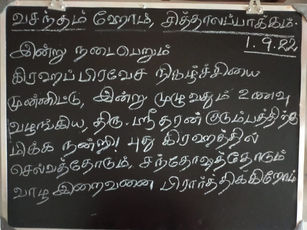 வசந்தம் ஹோம், சித்தாலப்பாக்கம்
1.9.22
இன்று நடைபெறும்
கிரஹப்பிரவேச நிகழ்ச்சியை
முன்னிட்டு, இன்று முழுவதும் உணவு
வழங்கிய, திரு. ஸ்ரீதரன் குடும்பத்திற்கு
மிக்க நன்றி! புது கிரஹத்தில்
செல்வத்தோடும், சந்தோஷத்தோடும்
வாழ இறைவனை பிரார்த்திக்கிறோம்